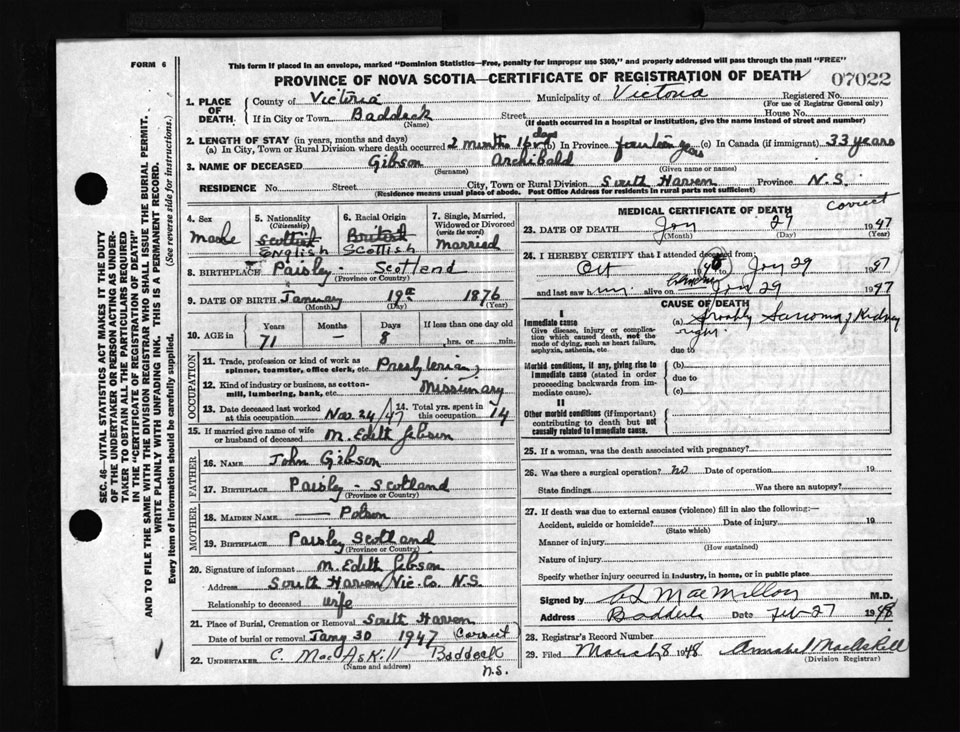 FORM 6
This form if placed in an envelope, marked "Dominion Statistics—Free, penalty for improper use $300," and properly addressed will pass through the mail "FREE"
PROVINCE OF NOVA SCOTIA—CERTIFICATE OF REGISTRATION OF DEATH 07022
1. PLACE OF DEATH. County of Victoria Municipality of Victoria Registered No.
(For use of Registrar General only)
If in City or Town Baddeck Street House No.
(Name) (If death occurred in a hospital or institution, give the name instead of street and number)
2. LENGTH OF STAY (in years, months and days)
(a) In City, Town or Rural Division where death occurred 2 months 16 days (b) In Province fourteen yrs (c) In Canada (if immigrant) 33 years
3. NAME OF DECEASED Gibson Archibald
(Surname) (Given name or names)
RESIDENCE No. Street City, Town or Rural Division South Harven Province N.S.
(Residence means usual place of abode. Post Office Address for residents in rural parts not sufficient)
4. Sex Male
5. Nationality (Citizenship) Scottish English
6. Racial Origin British Scottish
7. Single, Married, Widowed or Divorced (write the word) Married
8. BIRTHPLACE Paisley - Scotland
(Province or Country)
9. DATE OF BIRTH January 19th 1876
(Month) (Day) (Year)
10. AGE in Years Months Days If less than one day old
71 — 8 hrs. or min.
OCCUPATION
11. Trade, profession or kind of work as spinner, teamster, office clerk, etc. Presbyterian
12. Kind of industry or business, as cotton-mill, lumbering, bank, etc. Missionary
13. Date deceased last worked at this occupation Nov 24/47
14. Total yrs. spent in this occupation 14
15. If married give name of wife or husband of deceased M. Edith Gibson
FATHER
16. NAME John Gibson
17. BIRTHPLACE Paisley - Scotland
(Province or Country)
MOTHER
18. MAIDEN NAME — Polson
19. BIRTHPLACE Paisley Scotland
(Province or Country)
20. Signature of informant M. Edith Gibson
Address South Harven Vic. Co. N.S.
Relationship to deceased wife
21. Place of Burial, Cremation or Removal South Harven
Date of burial or removal Jany 30 1947 (Correct)
22. UNDERTAKER C. MacAskill Baddeck N.S.
(Name and address)
MEDICAL CERTIFICATE OF DEATH Correct
23. DATE OF DEATH Jan 27 1947
(Month) (Day) (Year)
24. I HEREBY CERTIFY that I attended deceased from:
Oct 1946 Jan 29 1947
and last saw him alive on Jan 29 1947
CAUSE OF DEATH
I
Immediate cause
Give disease, injury or complication which caused death, not the mode of dying, such as heart failure, asphyxia, asthenia, etc.
(a) Sarcoma of Kidney
right
due to
Morbid conditions, if any, giving rise to immediate cause (stated in order proceeding backwards from immediate cause).
(b)
due to
(c)
II
Other morbid conditions (if important) contributing to death but not causally related to immediate cause.
25. If a woman, was the death associated with pregnancy?
26. Was there a surgical operation? no Date of operation 19
State findings Was there an autopsy?
27. If death was due to external causes (violence) fill in also the following:—
Accident, suicide or homicide? Date of injury 19
(State which)
Manner of injury
(How sustained)
Nature of injury
Specify whether injury occurred in industry, in home, or in public place
Signed by MacMillan M.D.
Address Baddeck Date Feb 27 1948
28. Registrar's Record Number
29. Filed March 8 1948 Annabel MacAskill
(Division Registrar)
SEC. 46—VITAL STATISTICS ACT MAKES IT THE DUTY
OF THE UNDERTAKER OR PERSON ACTING AS UNDER-
TAKER TO OBTAIN ALL THE PARTICULARS REQUIRED
IN THE "CERTIFICATE OF REGISTRATION OF DEATH"
AND TO FILE THE SAME WITH THE DIVISION REGISTRAR WHO SHALL ISSUE THE BURIAL PERMIT.
WRITE PLAINLY WITH UNFADING INK. THIS IS A PERMANENT RECORD.
Every item of information should be carefully supplied. (See reverse side for instructions.)